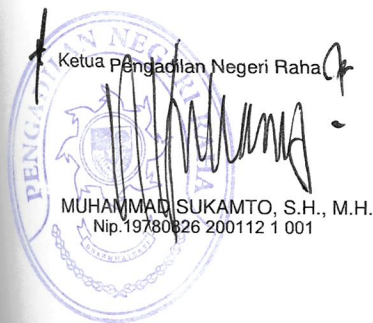 Ketua Pengadilan Negeri Raha
PENGADILAN NEGERI RAHA
MUHAMMAD SUKAMTO, S.H., M.H.
Nip.19780826 200112 1 001